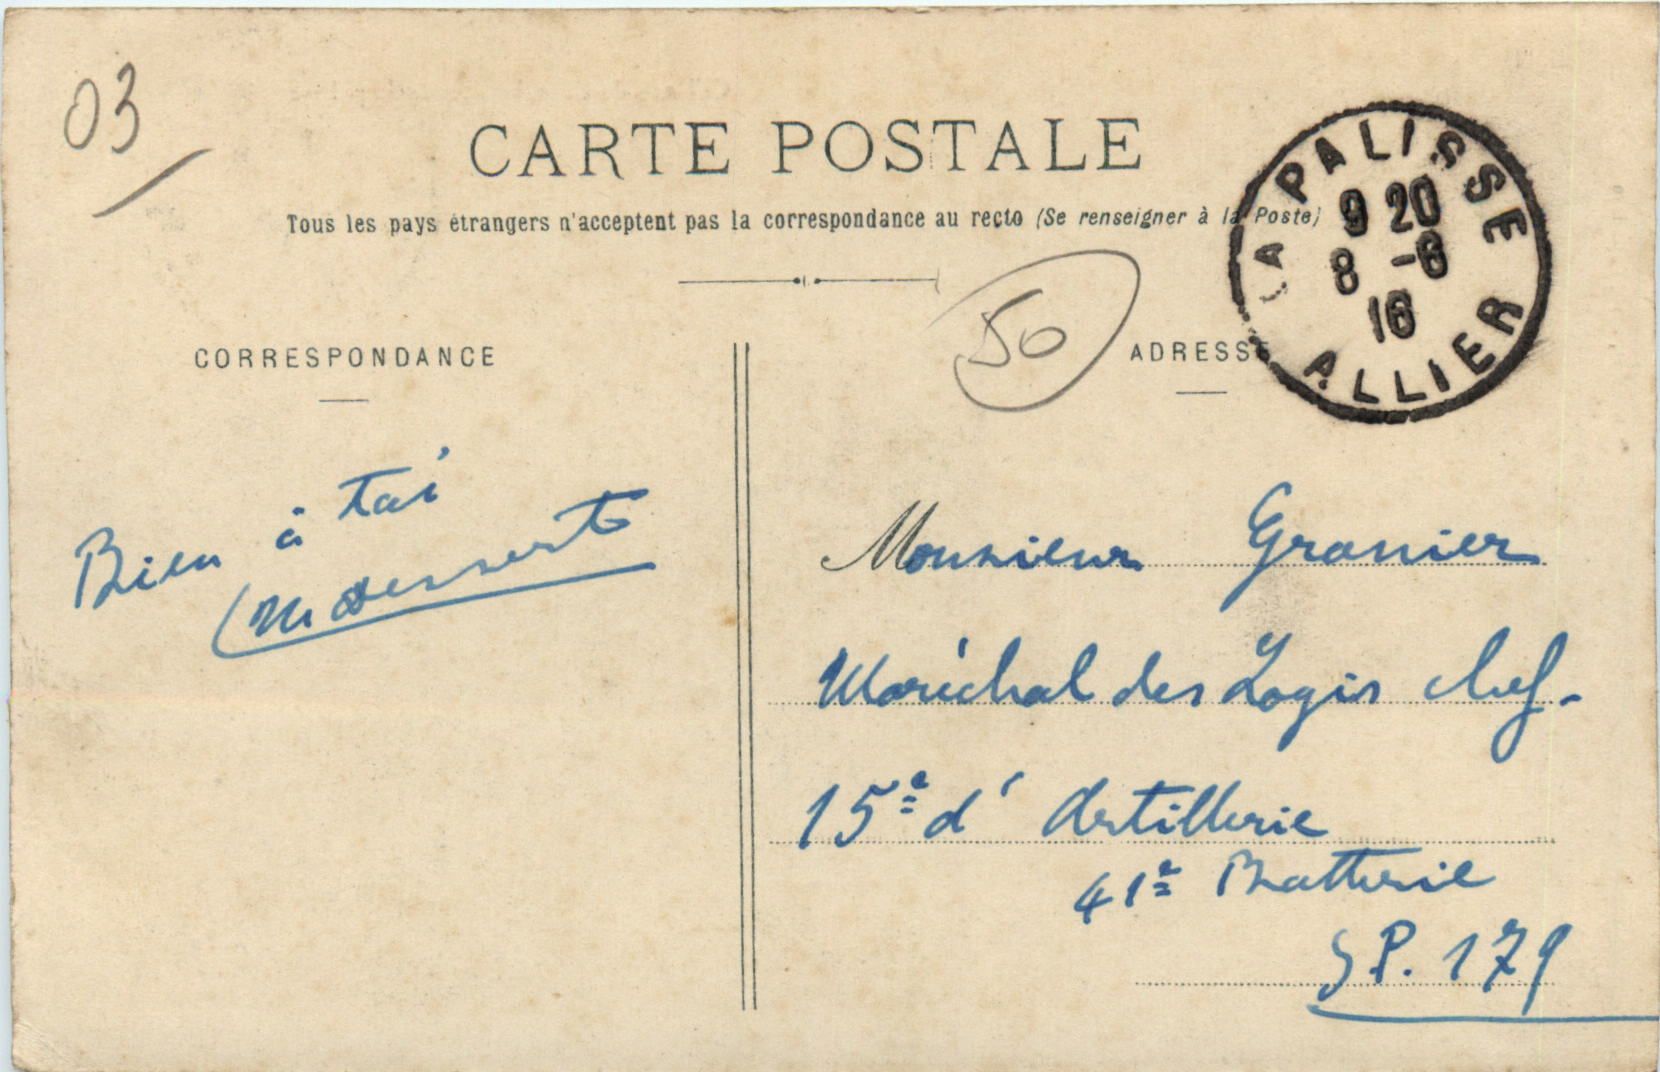 03
CARTE POSTALE
Tous les pays étrangers n'acceptent pas la correspondance au recto (Se renseigner à la Poste)
LA PALISSE
9 20
8 -6
16
ALLIER
50
CORRESPONDANCE
ADRESSE
Bien à toi
M Dessert
Monsieur Granier
Maréchal des Logis chef.
15e d'Artillerie
41e Batterie
S.P. 179